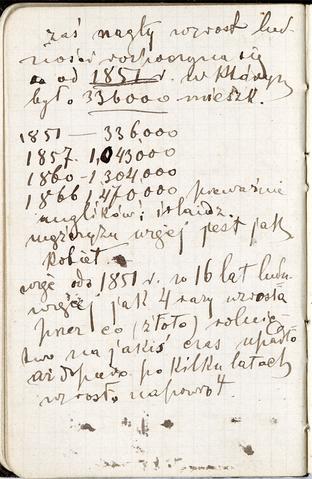 zaś nagły wzrost lud-
ności rozpoczyna się
od 1851 r. w którym
było 336000 mieszk.
1851 — 336000
1857. 1,043000
1860 - 1304000
1866 1,470000 przeważnie
anglików i irlandz.
mężczyzn więcej jest jak
kobiet.
więc od 1851 r. w 16 lat ludn.
więcej jak 4 razy wzrosła
przez co (złoto) rolnic-
two na jakiś czas upadło
aż dopiero po kilku latach
wzrosło napowrót.